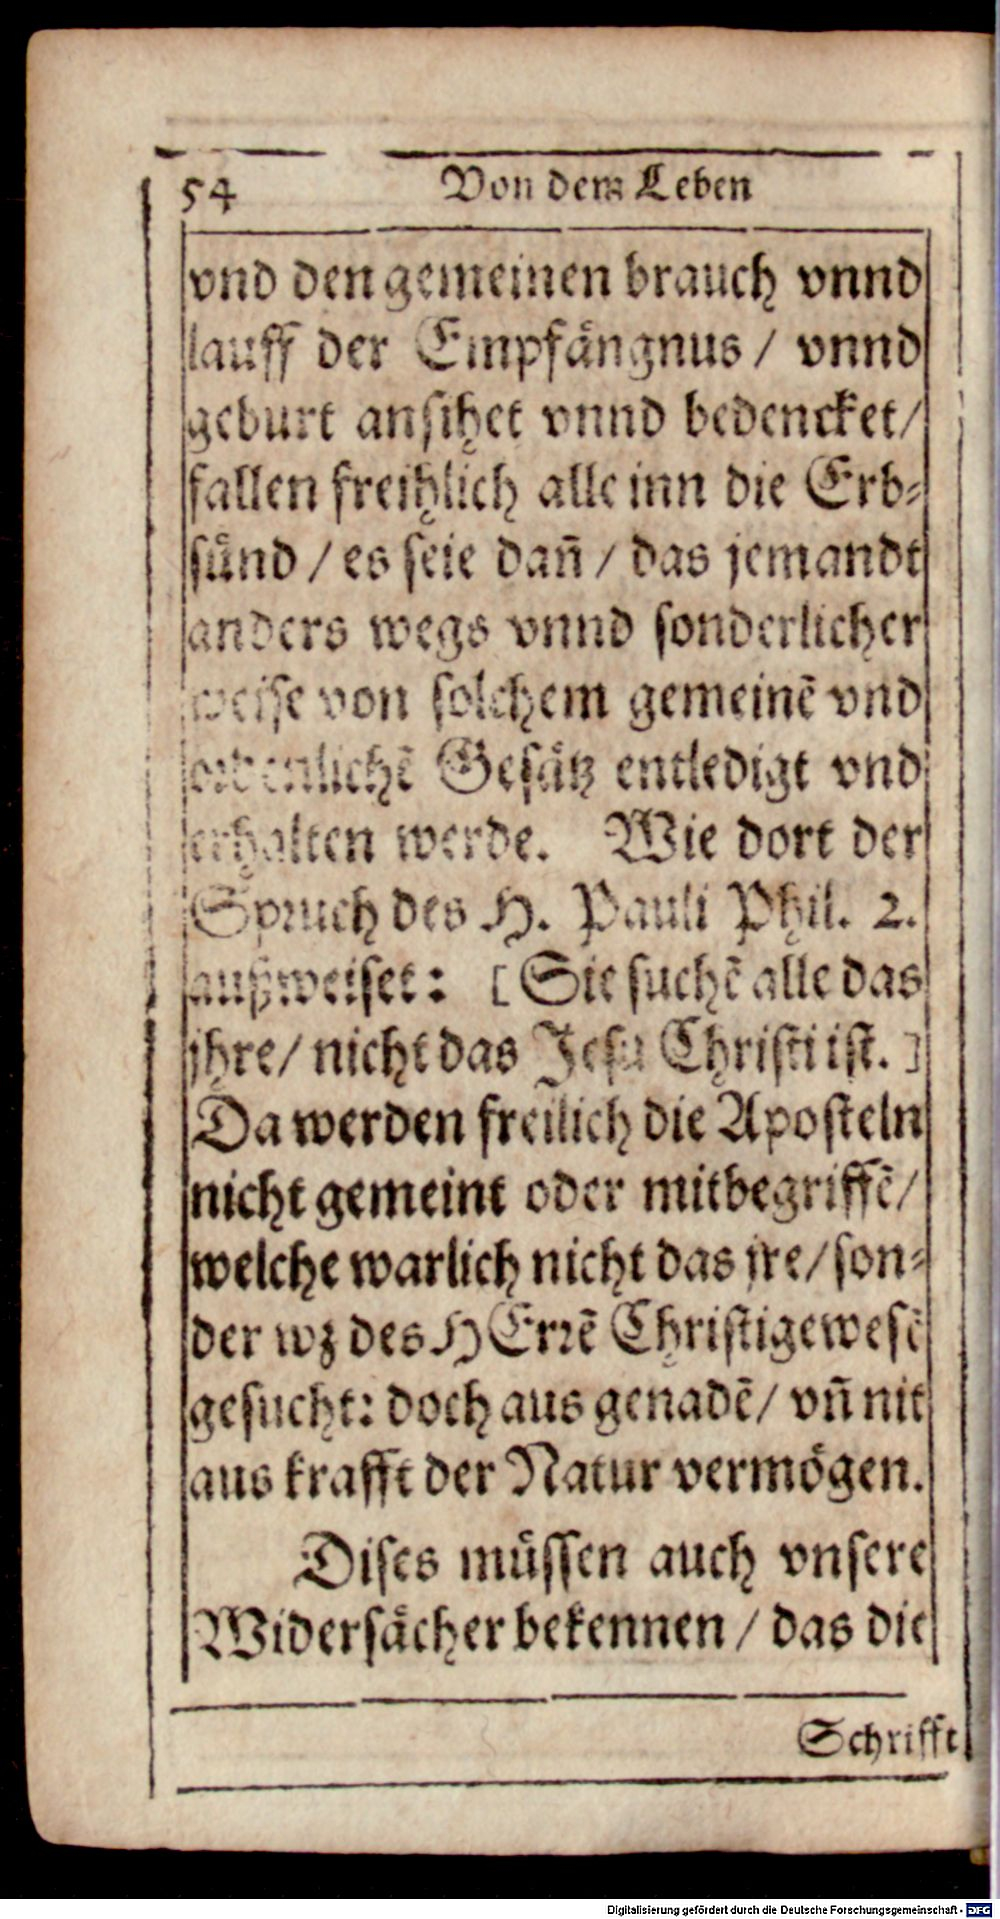 54 Von dem Leben
vnd den gemeinen brauch vnnd
lauff der Empfängnus / vnnd
geburt ansihet vnnd bedencket/
fallen freihlich alle inn die Erb-
sünd / es seie dañ / das jemandt
anders wegs vnnd sonderlicher
weise von solchem gemeinē vnd
ordenlichē Gesätz entledigt vnd
erhalten werde. Wie dort der
Spruch des H. Pauli Phil. 2.
außweiset: [Sie suchē alle das
jhre/ nicht das Jesu Christi ist.]
Da werden freilich die Aposteln
nicht gemeint oder mitbegriffē/
welche warlich nicht das jre/ son-
der wz des HErrē Christi gewesē
gesucht: doch aus genadē/ vñ nit
aus krafft der Natur vermögen.
Dises müssen auch vnsere
Widersächer bekennen / das die
Schrifft
Digitalisierung gefördert durch die Deutsche Forschungsgemeinschaft - DFG